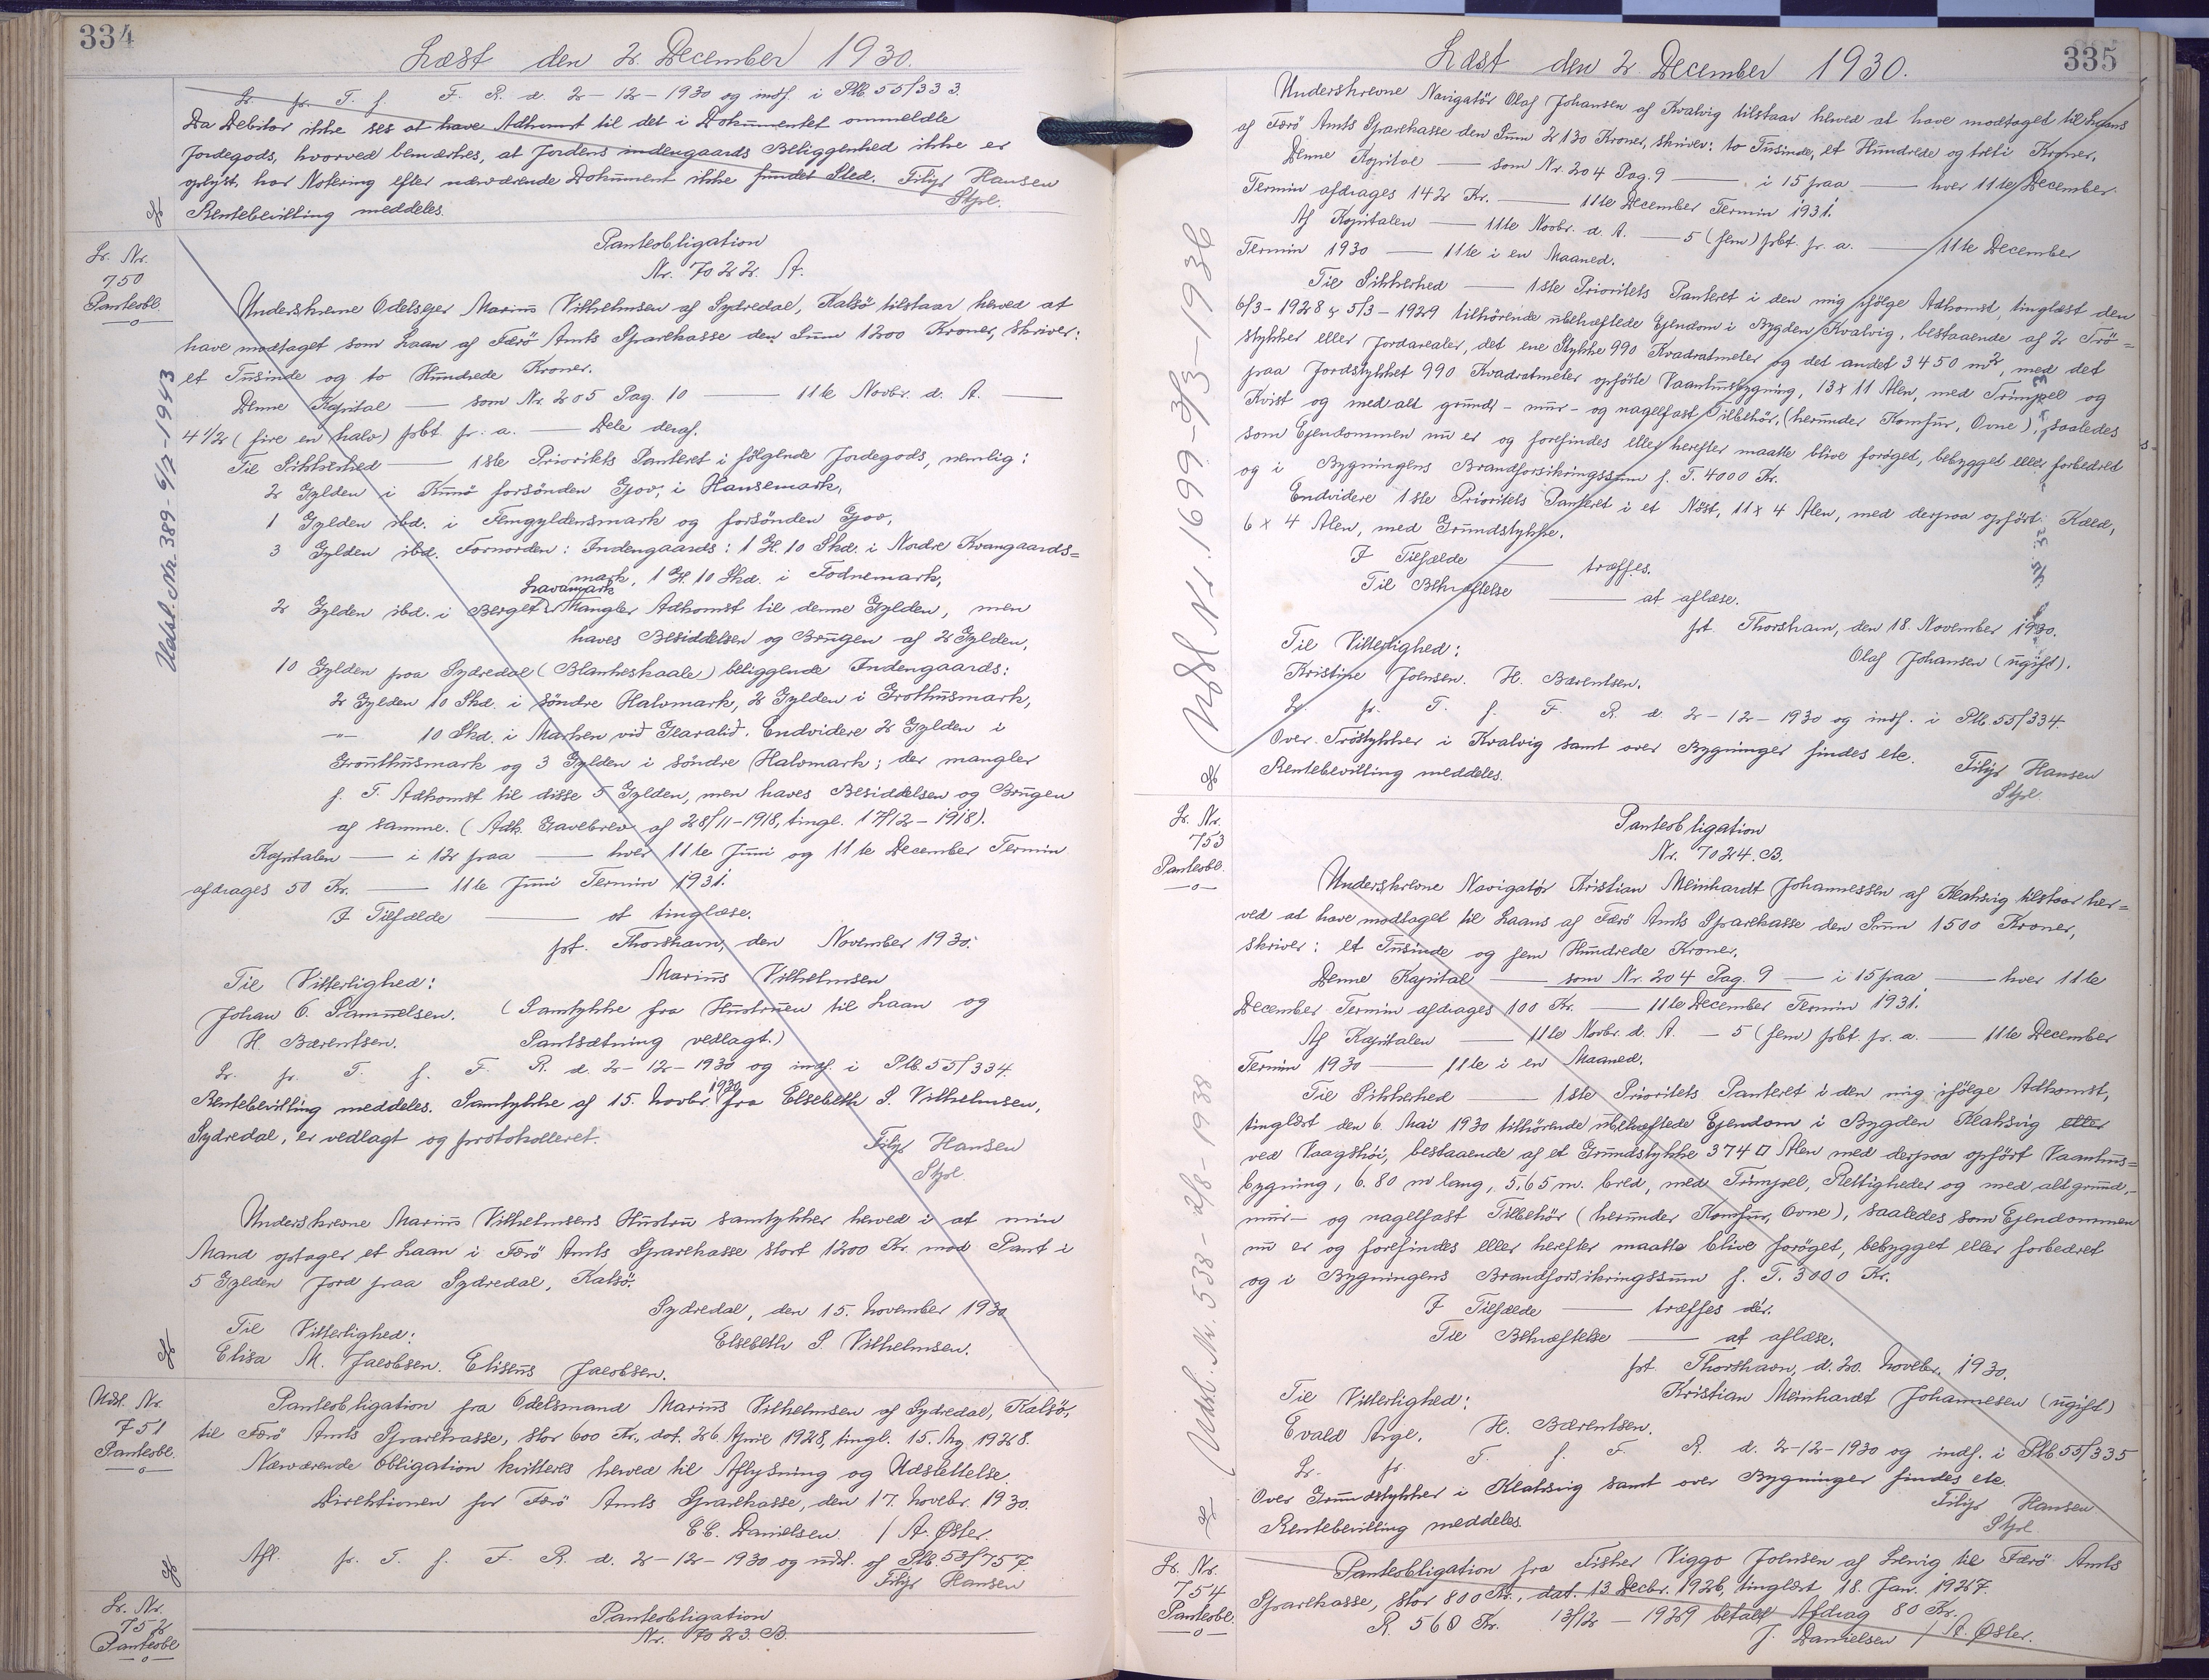 334
Læst den 2. December 1930.
Lr. fr. T. f. F. R. d. 2-12-1930 og indf. i Ptb. 55/333.
Da Debitor ikke ses at have Adkomst til det i Dokumentet ommeldte
Jordegods, hvorved bemærkes, at Jordens indengaards Beliggenhed ikke er
oplyst, har Notering efter nærværende Dokument ikke fundet Sted. Filip Hansen
Rentebevilling meddeles. Stpl.
Lr. Nr.
750
Panteobl.
Udsl. Nr. 389 - 6/7-1943
Panteobligation
Nr. 7022. A.
Underskrevne Odelsejer Marius Vilhelmsen af Sydredal, Kalsö tilstaar herved at
have modtaget som Laan af Færö Amts Sparekasse den Sum 1200 Kroner, skriver:
et Tusinde og to Hundrede Kroner.
Denne Kapital — som Nr. 205 Pag. 10 — 11te Novbr. d. A. —
4 1/2 (fire en halv) pbt. pr. a. — Dele deraf.
Til Sikkerhed — 1ste Prioritets Panteret i følgende Jordegods, nemlig:
2 Gylden i Kunö forsönden Gjov, i Hansemark,
1 Gylden ibd. i Femgyldensmark og forsönden Gjov,
3 Gylden ibd. Fornorden: Indengaards: 1 G. 10 Skd. i Nordre Kvangaards=
mark, 1 G. 10 Skd. i Todnemark,
Lavamark
2 Gylden ibd. i Berget Mangler Adkomst til denne Gylden, men
haves Besiddelsen og Brugen af 2 Gylden,
10 Gylden paa Sydredal (Blankeskaale) beliggende Indengaards:
2 Gylden 10 Skd. i söndre Halvmark, 2 Gylden i Grothusmark,
-"- 10 Skd. i Marken við Gearalið. Endvidere 2 Gylden i
Grouthusmark og 3 Gylden i söndre Halvmark; der mangler
f. T. Adkomst til disse 5 Gylden, men haves Besiddelsen og Brugen
af samme. (Adk. Gavebrev af 28/11-1918, tingl. 17/12-1918).
Kapitalen — i 12 paa — hver 11te Juni og 11te December Termin
afdrages 50 Kr. — 11te Juni Termin 1931.
I Tilfælde — at tinglæse.
pt. Thorshavn, den November 1930.
Til Vitterlighed: Marius Vilhelmsen
Johan C. Samuelsen. (Samtykke fra Hustruen til Laan og
H. Bærentsen. Pantsætning vedlagt.)
Lr. fr. T. f. F. R. d. 2-12-1930 og indf. i Ptb. 55/334.
Rentebevilling meddeles. Samtykke af 15. Novbr. 1930 fra Elsebeth S. Vilhelmsen,
Sydredal, er vedlagt og protokolleret. Filip Hansen
Stpl.
Underskrevne Marius Vilhelmsens Hustru samtykker herved i at min
Mand optager et Laan i Færö Amts Sparekasse stort 1200 Kr. mod Pant i
5 Gylden Jord paa Sydredal, Kalsö.
Sydredal, den 15. November 1930
Til Vitterlighed: Elsebeth S. Vilhelmsen.
Elisa M. Jacobsen. Eliseus Jacobsen.
Udsl. Nr.
751
Panteobl.
Panteobligation fra Odelsmand Marius Vilhelmsen af Sydredal, Kalsö,
til Færö Amts Sparekasse, stor 600 Kr., dat. 26. April 1928, tingl. 15. Aug. 1928.
Nærværende Obligation kvitteres herved til Aflysning og Udslettelse.
Direktionen for Færö Amts Sparekasse, den 17. Novebr. 1930.
C.C. Danielsen / A. Øster.
Afl. fr. T. f. F. R. d. 2-12-1930 og udsl. af Ptb. 53/757.
Filip Hansen
Lr. Nr.
752
Panteobl.
Panteobligation
Nr. 7023. B.
335
Læst den 2. December 1930.
Underskrevne Navigatör Olaf Johansen af Kvalvig tilstaar herved at have modtaget til Laans
af Færö Amts Sparekasse den Sum 2130 Kroner, skriver: to Tusinde, et Hundrede og treti Kroner.
Denne Kapital — som Nr. 204 Pag. 9 — i 15 paa — hver 11te December
Termin afdrages 142 Kr. — 11te December Termin 1931.
Af Kapitalen — 11te Novbr. d. A. — 5 (fem) pbt. pr. a. — 11te December
Termin 1930 — 11te i en Maaned.
Til Sikkerhed — 1ste Prioritets Panteret i den mig ifølge Adkomst, tinglæst den
6/3-1928 & 5/3-1929 tilhörende ubehæftede Ejendom i Bygden Kvalvig, bestaaende af 2 Trö=
stykker eller Jordarealer, det ene Stykke 990 Kvadratmeter og det andet 3450 m², med det
paa Jordstykket 990 Kvadratmeter opförte Vaanhusbygning, 13 x 11 Alen, med Trimpel og
Kvist og med alt grund- mur- og nagelfast Tilbehör, (herunder Komfur, Ovne), saaledes
som Ejendommen nu er og forefindes eller herefter maatte blive foröget, bebygget eller forbedret
og i Bygningens Brandforsikringssum f. T. 4000 Kr.
Endvidere 1ste Prioritets Panteret i et Nöst, 11 x 4 Alen, med derpaa opfört Kæld,
6 x 4 Alen, med Grundstykke.
I Tilfælde — træffes.
Til Bekræftelse — at aflæse.
pt. Thorshavn, den 18. November 1930.
Til Vitterlighed: Olaf Johansen (ugift).
Kristine Joensen. H. Bærentsen.
Lr. fr. T. f. F. R. d. 2-12-1930 og indf. i Ptb. 55/334.
Over Tröstykker i Kvalvig samt over Bygninger findes etc. Filip Hansen
Rentebevilling meddeles. Stpl.
Udsl Nr. 1699 - 3/3-1936
Lr. Nr.
753
Panteobl.
Udsl. Nr. 538 - 2/8-1938
Panteobligation
Nr. 7024. B.
Underskrevne Navigatör Kristian Meinhardt Johannessen af Klaksvig tilstaar her=
ved at have modtaget til Laans af Færö Amts Sparekasse den Sum 1500 Kroner,
skriver: et Tusinde og fem Hundrede Kroner.
Denne Kapital — som Nr. 204 Pag. 9 — i 15 paa — hver 11te
December Termin afdrages 100 Kr. — 11te December Termin 1931.
Af Kapitalen — 11te Novbr. d. A. — 5 (fem) pbt. pr. a. — 11te December
Termin 1930 — 11te i en Maaned.
Til Sikkerhed — 1ste Prioritets Panteret i den mig ifölge Adkomst,
tinglæst den 6. Mai 1930 tilhörende ubehæftede Ejendom i Bygden Klaksvig eller
ved Vaagshöi, bestaaende af et Grundstykke 374 □ Alen med derpaa opfört Vaanhus=
bygning, 6.80 m lang, 5,65 m. bred, med Trimpel, Rettigheder og med alt grund,-
mur- og nagelfast Tilbehör (herunder Komfur, Ovne), saaledes som Ejendommen
nu er og forefindes eller herefter maatte blive foröget, bebygget eller forbedret
og i Bygningens Brandforsikringssum f. T. 3000 Kr.
I Tilfælde — træffes dér.
Til Bekræftelse — at aflæse.
pt. Thorshavn, d. 20. Novebr. 1930.
Til Vitterlighed: Kristian Meinhardt Johannesen (ugift)
Evald Arge. H. Bærentsen.
Lr. fr. T. f. F. R. d. 2-12-1930 og indf. i Ptb. 55/335
Over Grundstykker i Klaksvig samt over Bygninger findes etc.
Rentebevilling meddeles. Filip Hansen
Stpl.
Lr. Nr.
754
Panteobl.
Panteobligation fra Fisker Viggo Joensen af Lervig til Færö Amts
Sparekasse, stor 800 Kr., dat. 13. Decbr. 1926, tinglæst 18. Jan. 1927.
R. 560 Kr. 13/12 - 1929 betalt Afdrag 80 Kr.
J. Danielsen / A. Øster.